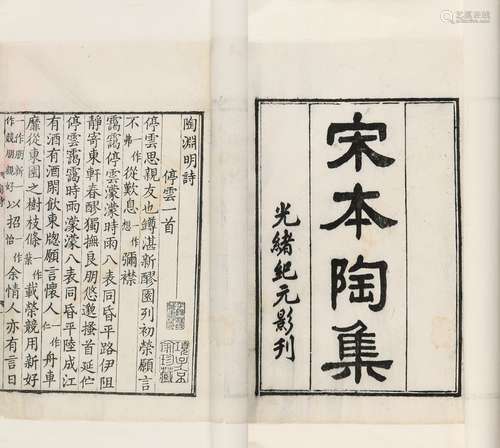 宋本陶集
光緒紀元影刊
陶淵明詩
停雲一首
停雲思親友也罇湛新醪園列初榮願言
不一作弗從歎息一作想彌襟
靄靄停雲濛濛時雨八表同昏平路伊阻
靜寄東軒春醪獨撫良朋悠邈搔首延佇
停雲靄靄時雨濛濛八表同昏平陸成江
有酒有酒閑飲東牎願言懷人一作仁舟車
靡從東園之樹枝條一作葉載榮競用新好
一作朋新一作競朋親好以招一作怡余情人亦有言日